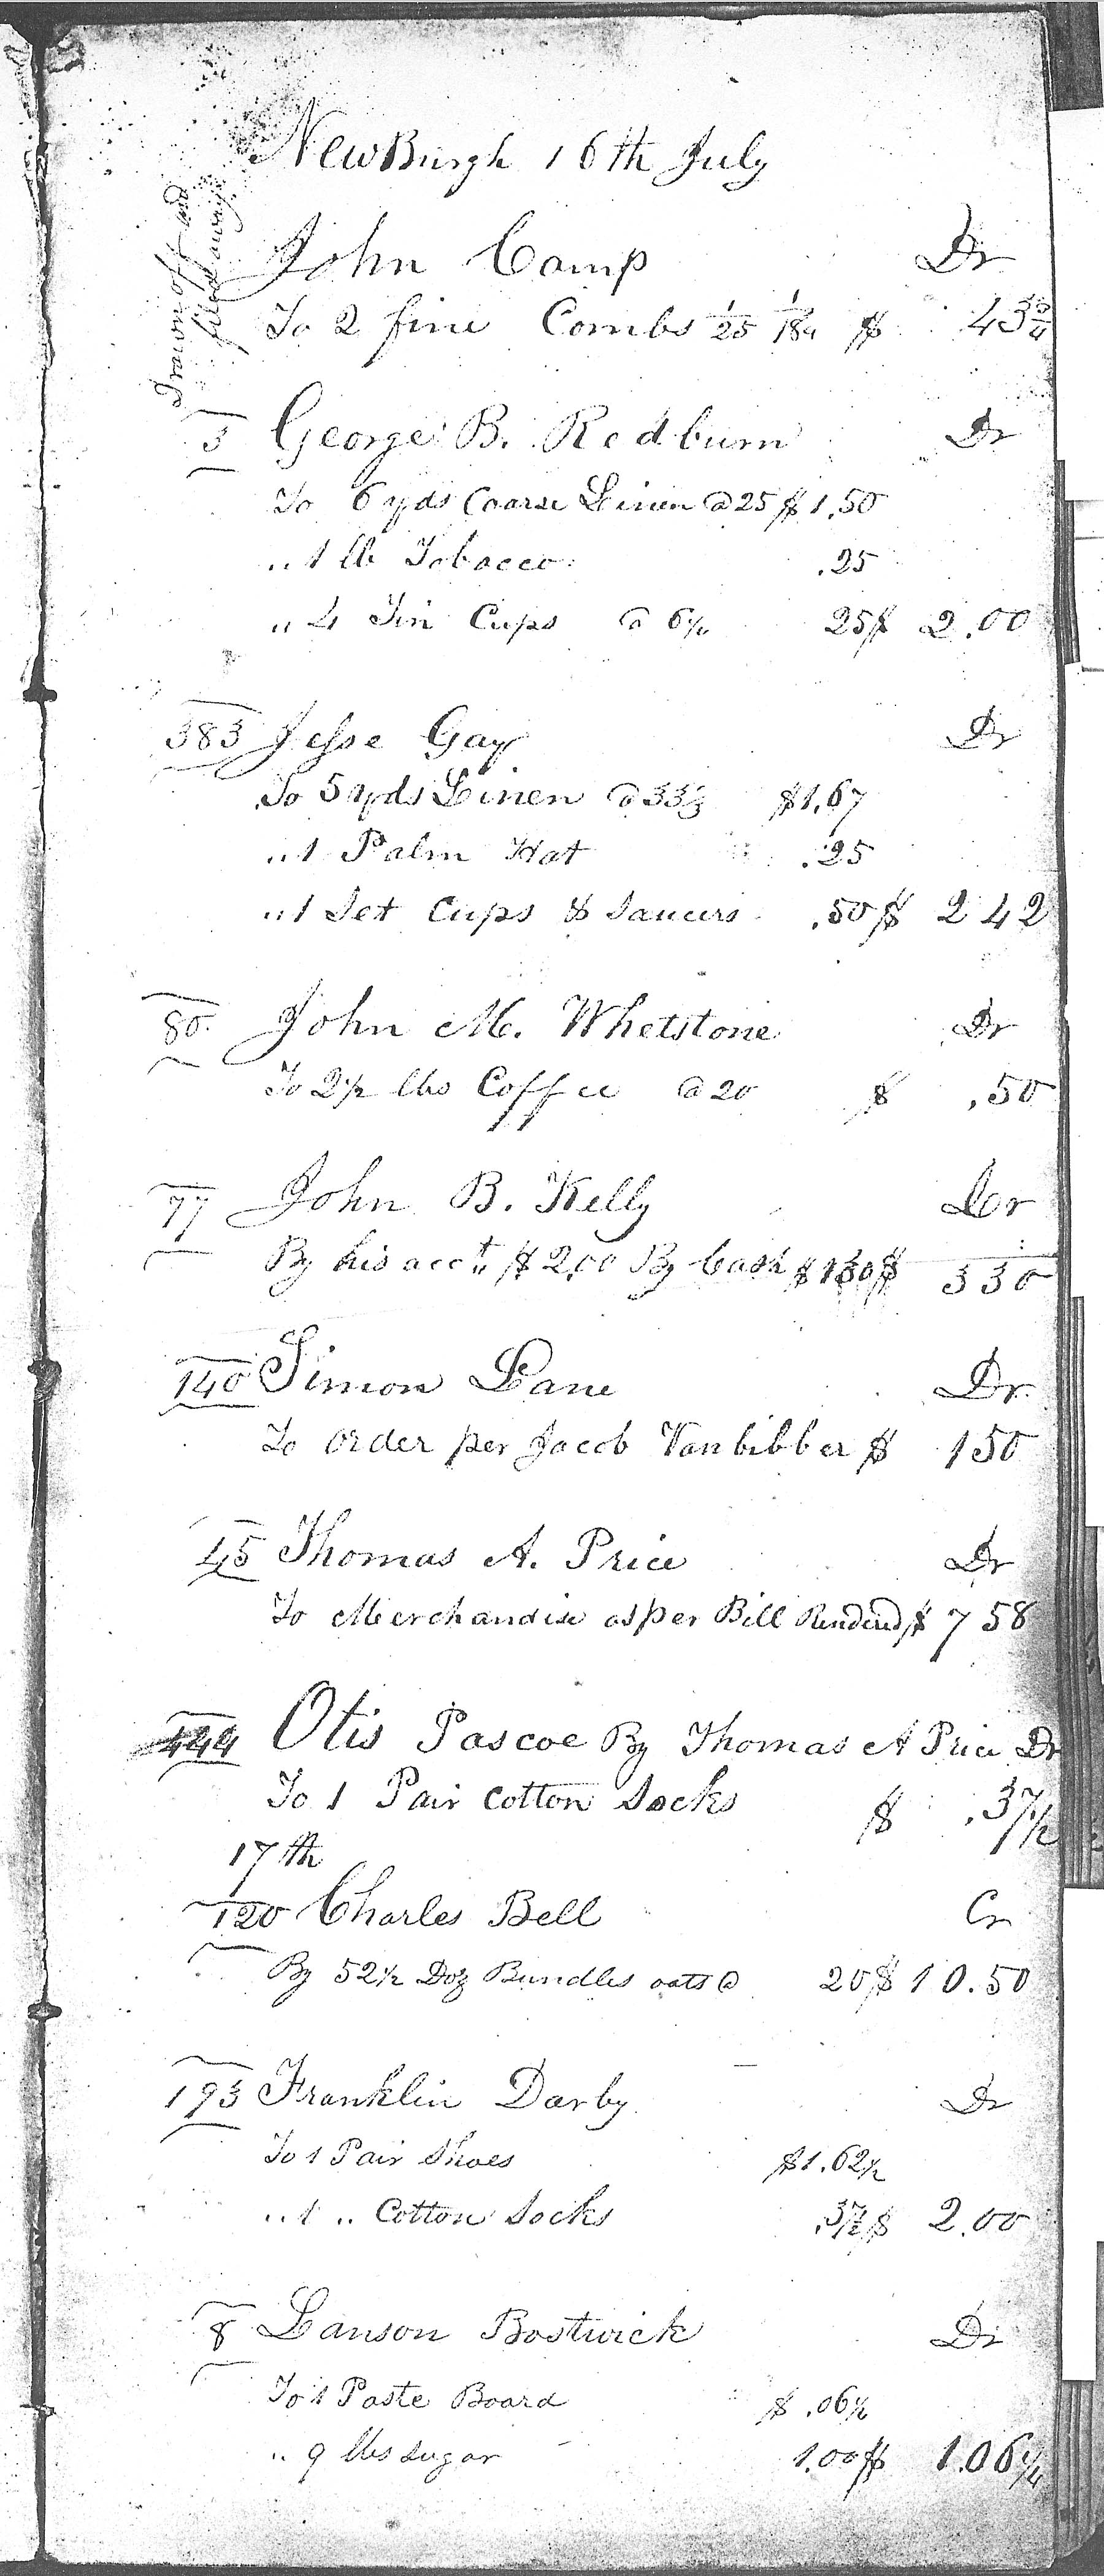 NewBurgh 16th July
Drawn off and
filed away
John Camp Dr
To 2 fine Combs 1/25 1/18¾ $ 43¾
3 George B. Redburn Dr
To 6 yds Coarse Linen @ 25 $ 1.50
" 1 lb Tobacco .25
" 4 Tin Cups @ 6¼ 25 $ 2.00
383 Jesse Gay Dr
To 5 yds Linen @ 33⅓ $1.67
" 1 Palm Hat .25
" 1 Set Cups & Saucers .50 $ 2 42
80 John M. Whetstone Dr
To 2½ lbs Coffee @ 20 $ .50
77 John B. Kelly Cr
By his acct $ 2.00 By Cash $ 1 30 $ 3 30
140 Simon Lane Dr
To order per Jacob Vanbibber $ 1 50
45 Thomas A. Price Dr
To Merchandise as per Bill Rendered $ 7 58
444 Otis Pascoe By Thomas A Price Dr
To 1 Pair Cotton Socks $ .37½
17th
120 Charles Bell Cr
By 52½ Doz Bundles oats @ 20 $ 10.50
193 Franklin Darby Dr
To 1 Pair Shoes $1.62½
" 1 " Cotton Socks .37½ $ 2.00
8 Lanson Bostwick Dr
To 1 Paste Board $ .06¼
" 9 lbs Sugar 1.00 $ 1.06¼